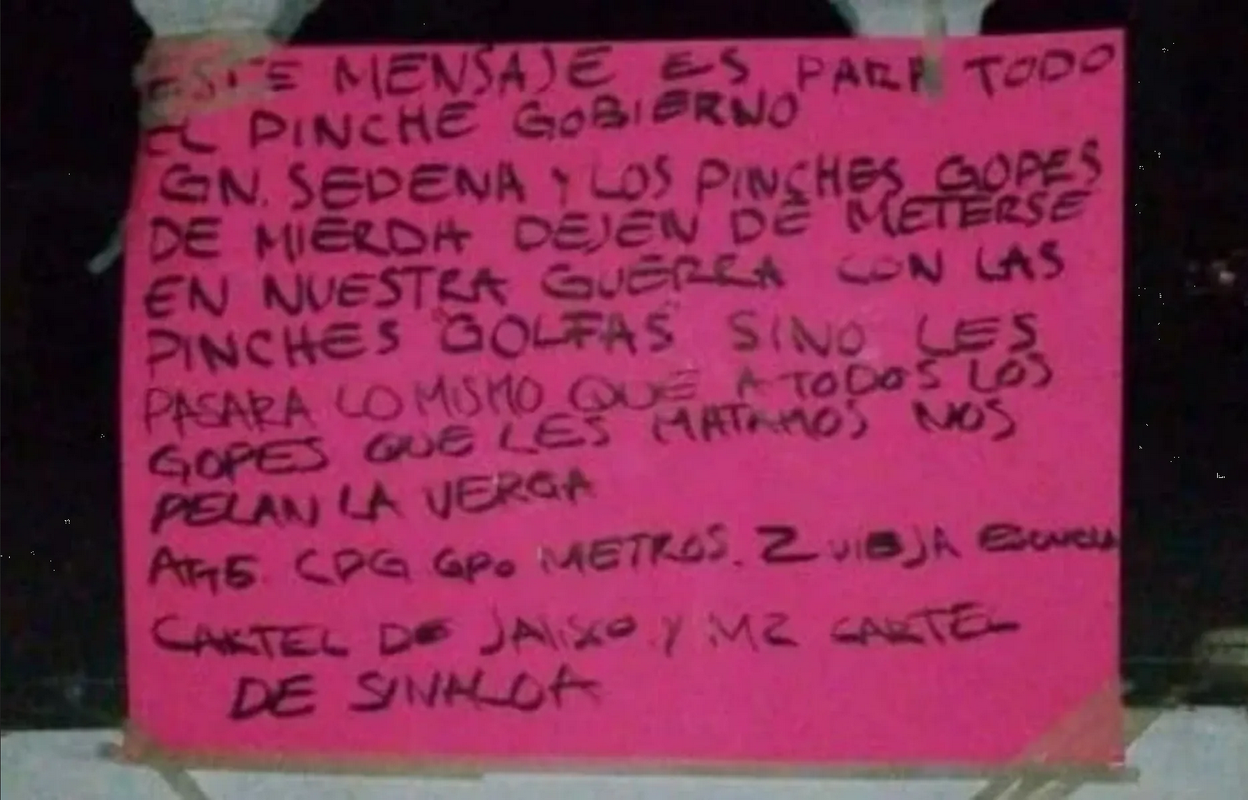 ESTE MENSAJE ES PARA TODO
EL PINCHE GOBIERNO
GN. SEDENA Y LOS PINCHES GOPES
DE MIERDA DEJEN DE METERSE
EN NUESTRA GUERRA CON LAS
PINCHES GOLFAS SINO LES
PASARA LO MISMO QUE A TODOS LOS
GOPES QUE LES MATAMOS NOS
PELAN LA VERGA
ATTE. CDG GPO METROS. Z VIEJA ESCUELA
CARTEL DE JALISCO Y MZ CARTEL
DE SINALOA